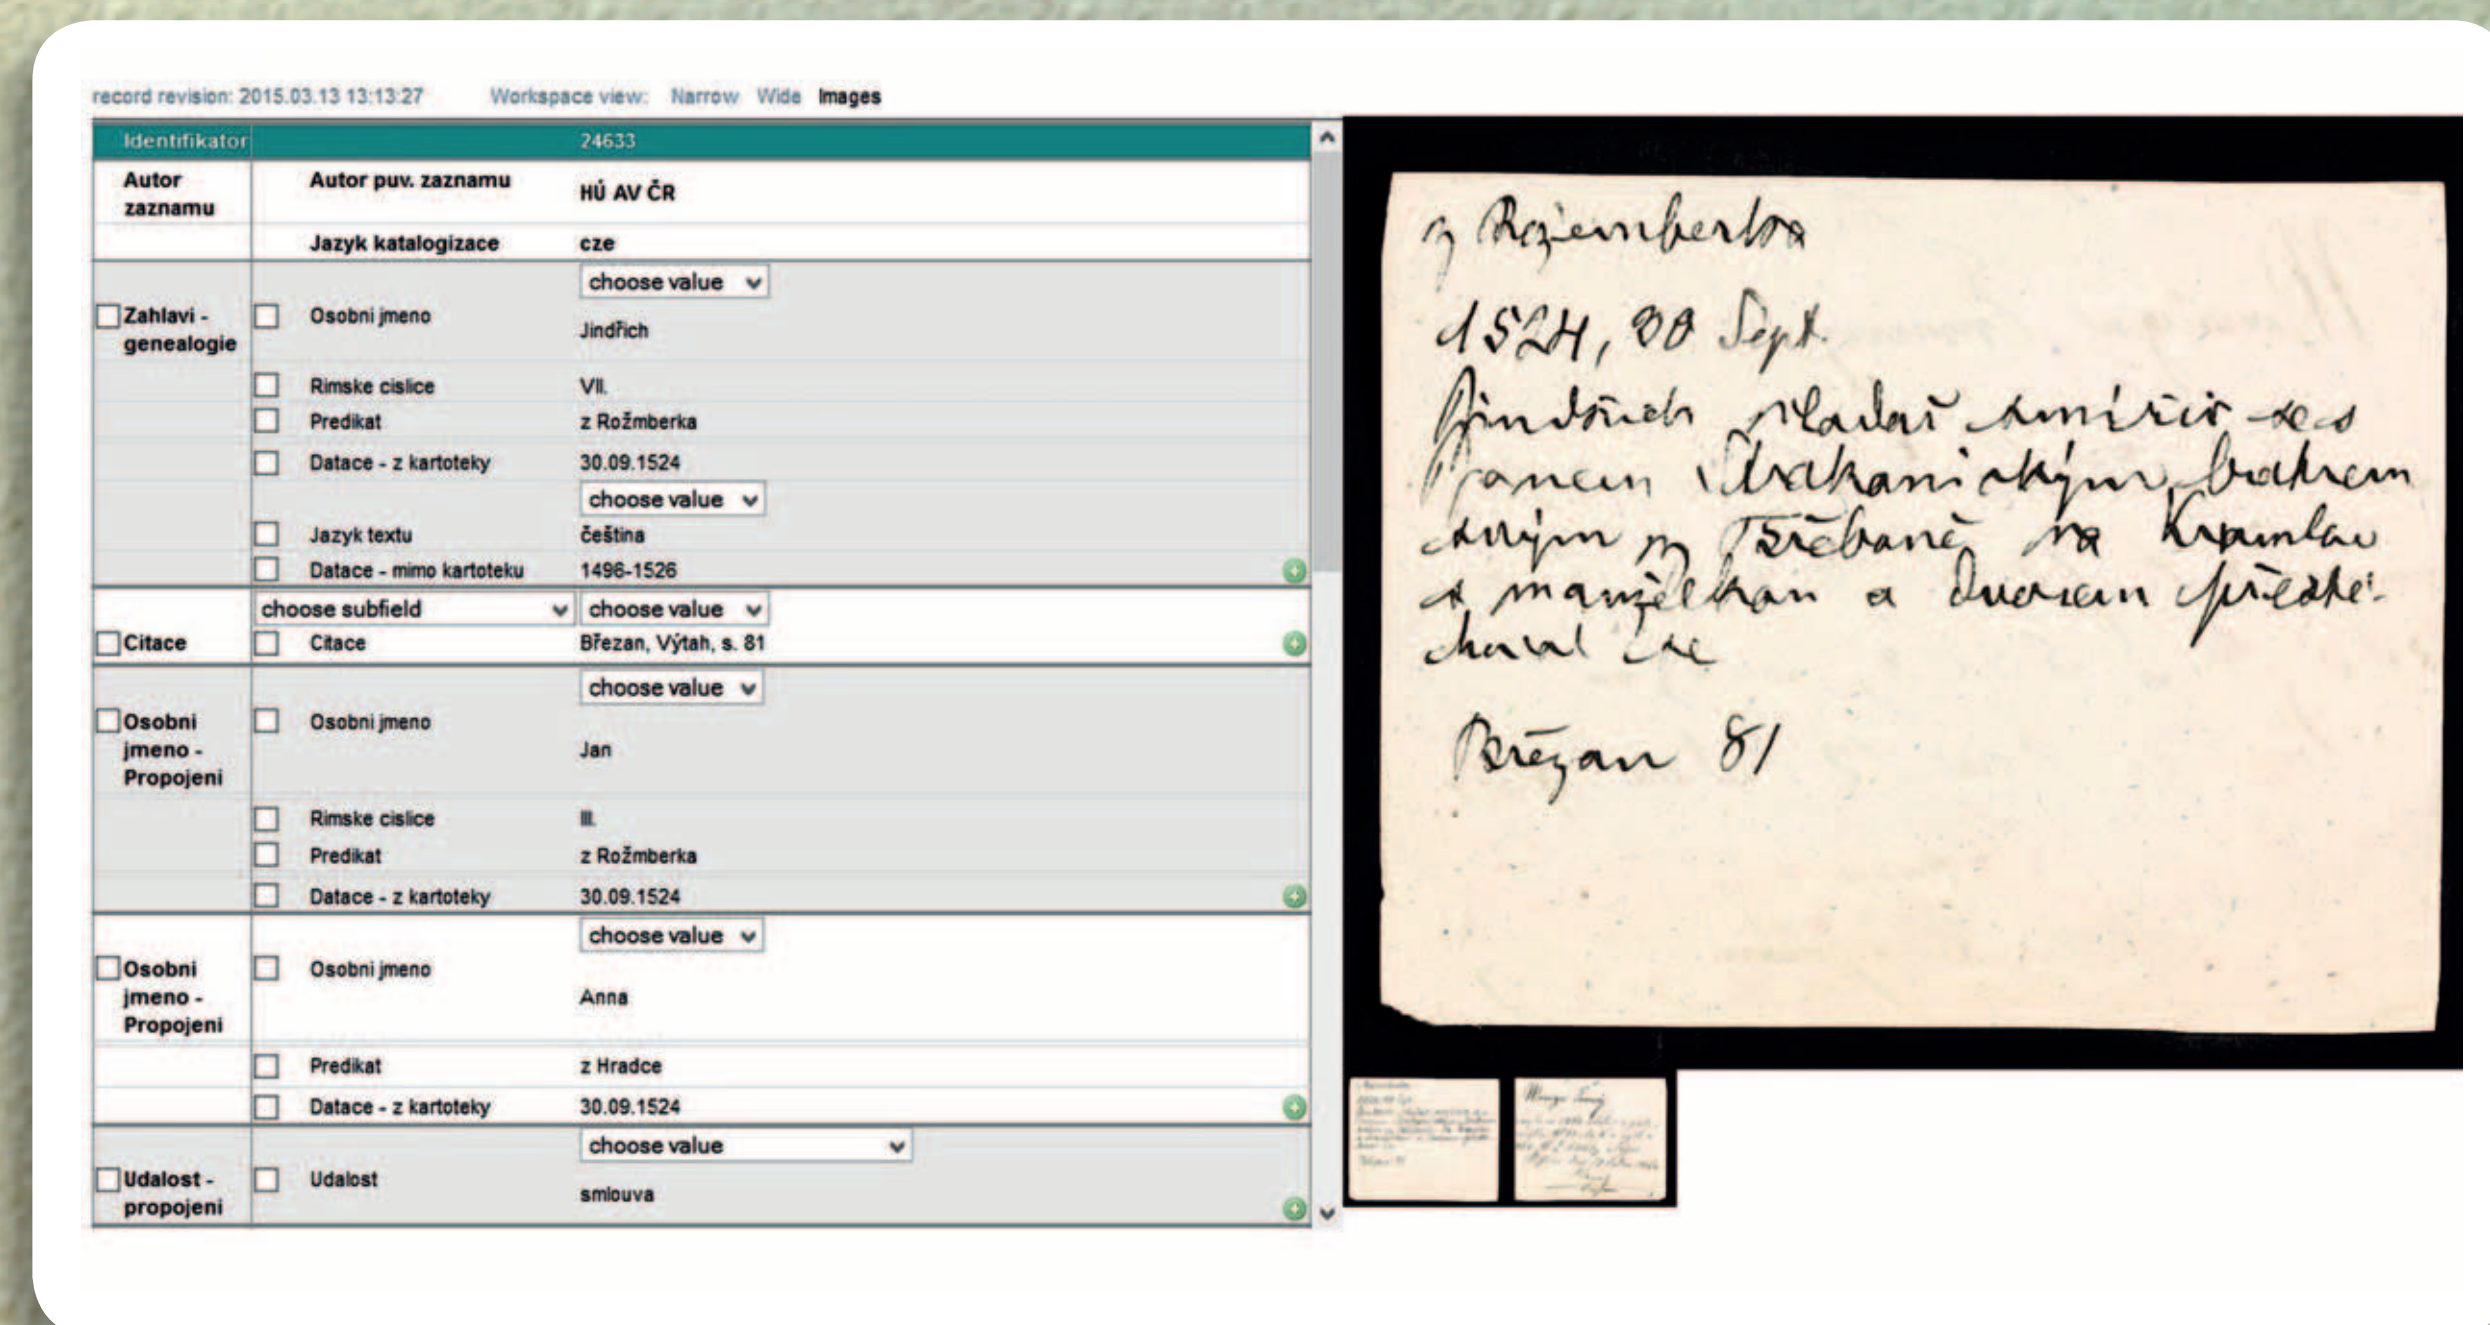 record revision: 2015.03.13 13:13:27 Workspace view: Narrow Wide Images
Identifikator 24633
Autor zaznamu Autor puv. zaznamu HÚ AV ČR
Jazyk katalogizace cze
choose value
Zahlavi - genealogie Osobni jmeno Jindřich
Rimske cislice VII.
Predikat z Rožmberka
Datace - z kartoteky 30.09.1524
choose value
Jazyk textu čeština
Datace - mimo kartoteku 1496-1526
choose subfield choose value
Citace Citace Březan, Výtah, s. 81
choose value
Osobni jmeno - Propojeni Osobni jmeno Jan
Rimske cislice III.
Predikat z Rožmberka
Datace - z kartoteky 30.09.1524
choose value
Osobni jmeno - Propojeni Osobni jmeno Anna
Predikat z Hradce
Datace - z kartoteky 30.09.1524
choose value
Udalost - propojeni Udalost smlouva
z Rožemberka
1524, 30 Sept.
Jindřich mladší smířiv se s
Janem Strakonickým, bratrem
svým z Třeboně na Krumlov
s manželkou a dvorem přestě-
hoval se
Březan 81